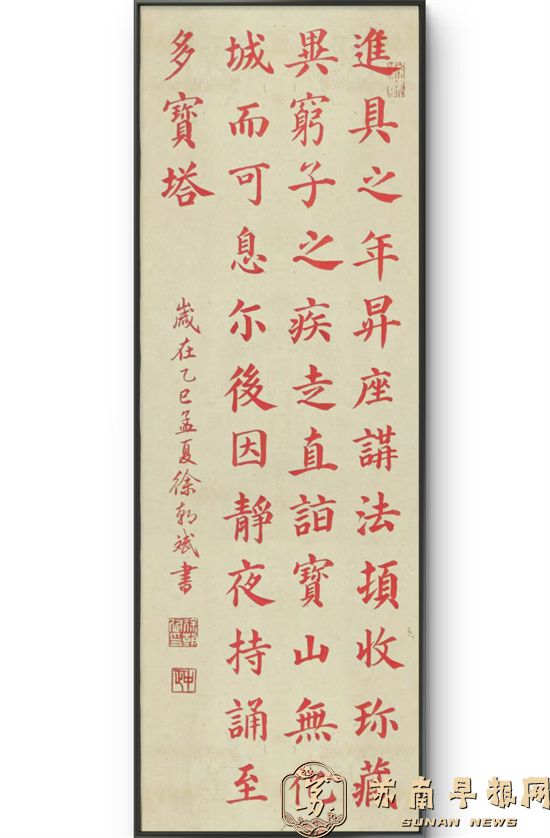 進具之年昇座講法頓收珎藏
異窮子之疾走直詣寶山無化
城而可息尔後因靜夜持誦至
多寶塔
歲在乙巳孟夏徐朝斌書
苏南早报网
SUNAN NEWS